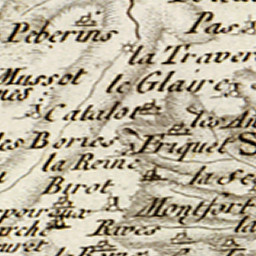 Peberins
Pas
la Traver
Mussot
le Glaire
Catalot
les Bories
Friquet
la Reine
Birot
la Fe
Montfort
Rives
la